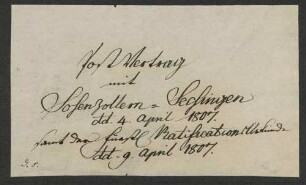 Post Vertrag
mit
Hohenzollern = Hechingen
dd. 4. April 1807.
samt der fürstl. Ratifications Urkunde
dd. 9. April 1807.